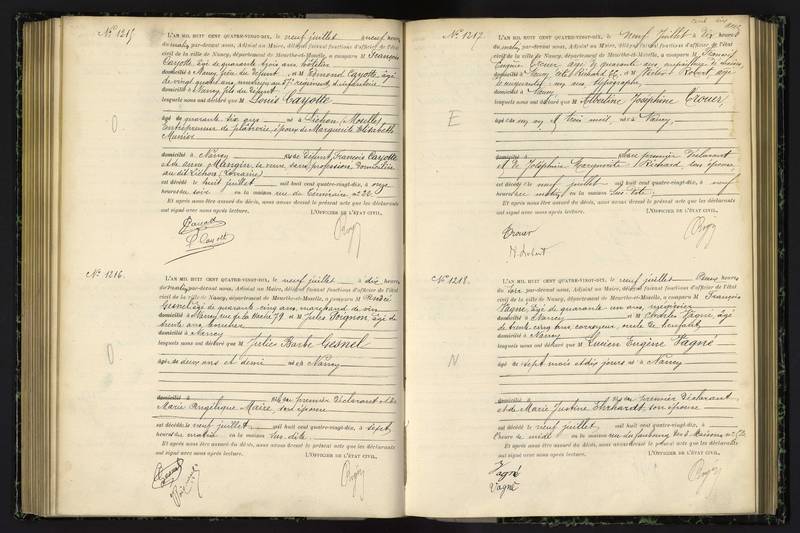 No. 1215
L'AN MIL HUIT CENT QUATRE-VINGT-DIX, le neuf juillet à neuf heures
du matin, par-devant nous, Adjoint au Maire, délégué faisant fonctions d'officier de l'état
civil de la ville de Nancy, département de Meurthe-et-Moselle, a comparu M François
Cayotte, âgé de quarante trois ans, hôtelier
domicilié à Nancy, frère du défunt, et M Edmond Cayotte, âgé
de vingt quatre ans,
domicilié à Nancy, fils du défunt
lesquels nous ont déclaré que M Louis Cayotte
âgé de quarante six ans né à Lichon (Moselle)
Entrepreneur de plâtrerie, époux de Marguerite Elisabeth
Munier
domicilié à Nancy fils de défunt François Cayotte
et de Anne Mangin, sa veuve, sans profession, domiciliée
au dit Lichon (Lorraine)
est décédé le huit juillet mil huit cent quatre-vingt-dix, à onze
heures du soir en la maison rue
Et après nous être assuré du décès, nous avons dressé le présent acte que les déclarants
ont signé avec nous après lecture. L'OFFICIER DE L'ÉTAT CIVIL,
Cayotte
Cayotte
No. 1216.
L'AN MIL HUIT CENT QUATRE-VINGT-DIX, le neuf juillet à dix heures
du matin, par-devant nous, Adjoint au Maire, délégué faisant fonctions d'officier de l'état
civil de la ville de Nancy, département de Meurthe-et-Moselle, a comparu M
Gesnel âgé de quarante cinq ans, marchand de vin
domicilié à Nancy, rue 79 et M Jules Poignon, âgé de
trente ans,
domicilié à Nancy
lesquels nous ont déclaré que M Julie Barbe Gesnel
âgée de deux ans et demi née à Nancy
domicilié à fille du premier Déclarant et de
Marie Angélique Maire, son épouse
est décédée le neuf juillet mil huit cent quatre-vingt-dix, à sept
heures du matin en la maison sus-dite
Et après nous être assuré du décès, nous avons dressé le présent acte que les déclarants
ont signé avec nous après lecture. L'OFFICIER DE L'ÉTAT CIVIL,
No. 1217
L'AN MIL HUIT CENT QUATRE-VINGT-DIX, le neuf juillet à dix heures
du matin, par-devant nous, Adjoint au Maire, délégué faisant fonctions d'officier de l'état
civil de la ville de Nancy, département de Meurthe-et-Moselle, a comparu M François
Eugène Crouer, âgé de quarante ans,
domicilié à Nancy, et M Victor Robert, âgé
de ans, typographe
domicilié à Nancy
lesquels nous ont déclaré que M Albertine Joséphine Crouer,
âgée de un an et trois mois, née à Nancy,
domicilié à fille du premier Déclarant
et de Joséphine Marguerite Richard, son épouse
est décédée le neuf juillet mil huit cent quatre-vingt-dix, à neuf
heures du matin, en la maison sus-dite
Et après nous être assuré du décès, nous avons dressé le présent acte que les déclarants
ont signé avec nous après lecture. L'OFFICIER DE L'ÉTAT CIVIL,
Crouer
V. Robert
No. 1218.
L'AN MIL HUIT CENT QUATRE-VINGT-DIX, le neuf juillet à Deux heures
du soir, par-devant nous, Adjoint au Maire, délégué faisant fonctions d'officier de l'état
civil de la ville de Nancy, département de Meurthe-et-Moselle, a comparu M François
Vagné, âgé de quarante un ans, menuisier
domicilié à Nancy et M Charles Vagné, âgé
de trente cinq ans, corroyeur, oncle de l'enfant,
domicilié à Nancy
lesquels nous ont déclaré que M Lucien Eugène Vagné
âgé de sept mois et dix jours né à Nancy
domicilié à fils du premier Déclarant
et de Marie Justine Ehrhardt, son épouse
est décédé le neuf juillet mil huit cent quatre-vingt-dix, à
une heure de midi en la maison rue du faubourg des 3 Maisons
Et après nous être assuré du décès, nous avons dressé le présent acte que les déclarants
ont signé avec nous après lecture. L'OFFICIER DE L'ÉTAT CIVIL,
Vagné
Vagné